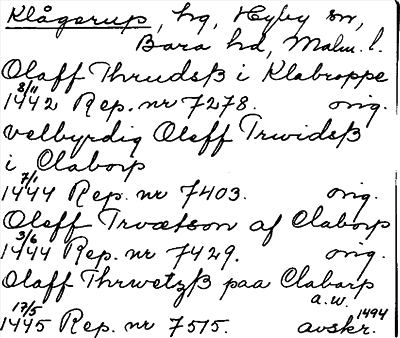 Klågerup, hg, Hyby sn,
Bara hd, Malm. l.
Olaff Thrudsß i Klabroppe
8/11
1442 Rep. nr 7278. orig.
velbyrdig Oleff Trwidsß
i Claborp
7/1
1444 Rep. nr 7403. orig.
Oleff Trvætson af Claborp
3/6
1444 Rep. nr 7429. orig.
Olaff Thrwetzß paa Claborp
17/5 a.w. 1494
1445 Rep. nr 7515. avskr.